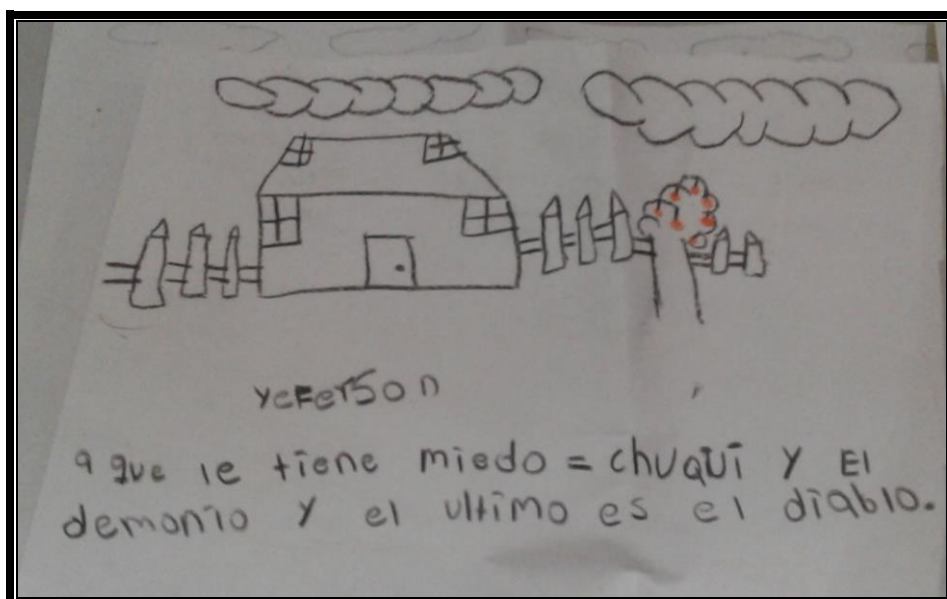 yeferson
a que le tiene miedo = chuqui y El
demonio y el ultimo es el diablo.